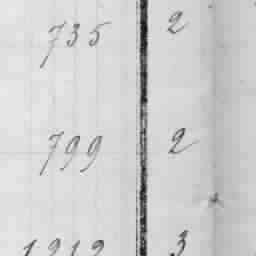 735 2
799 2
1212 3